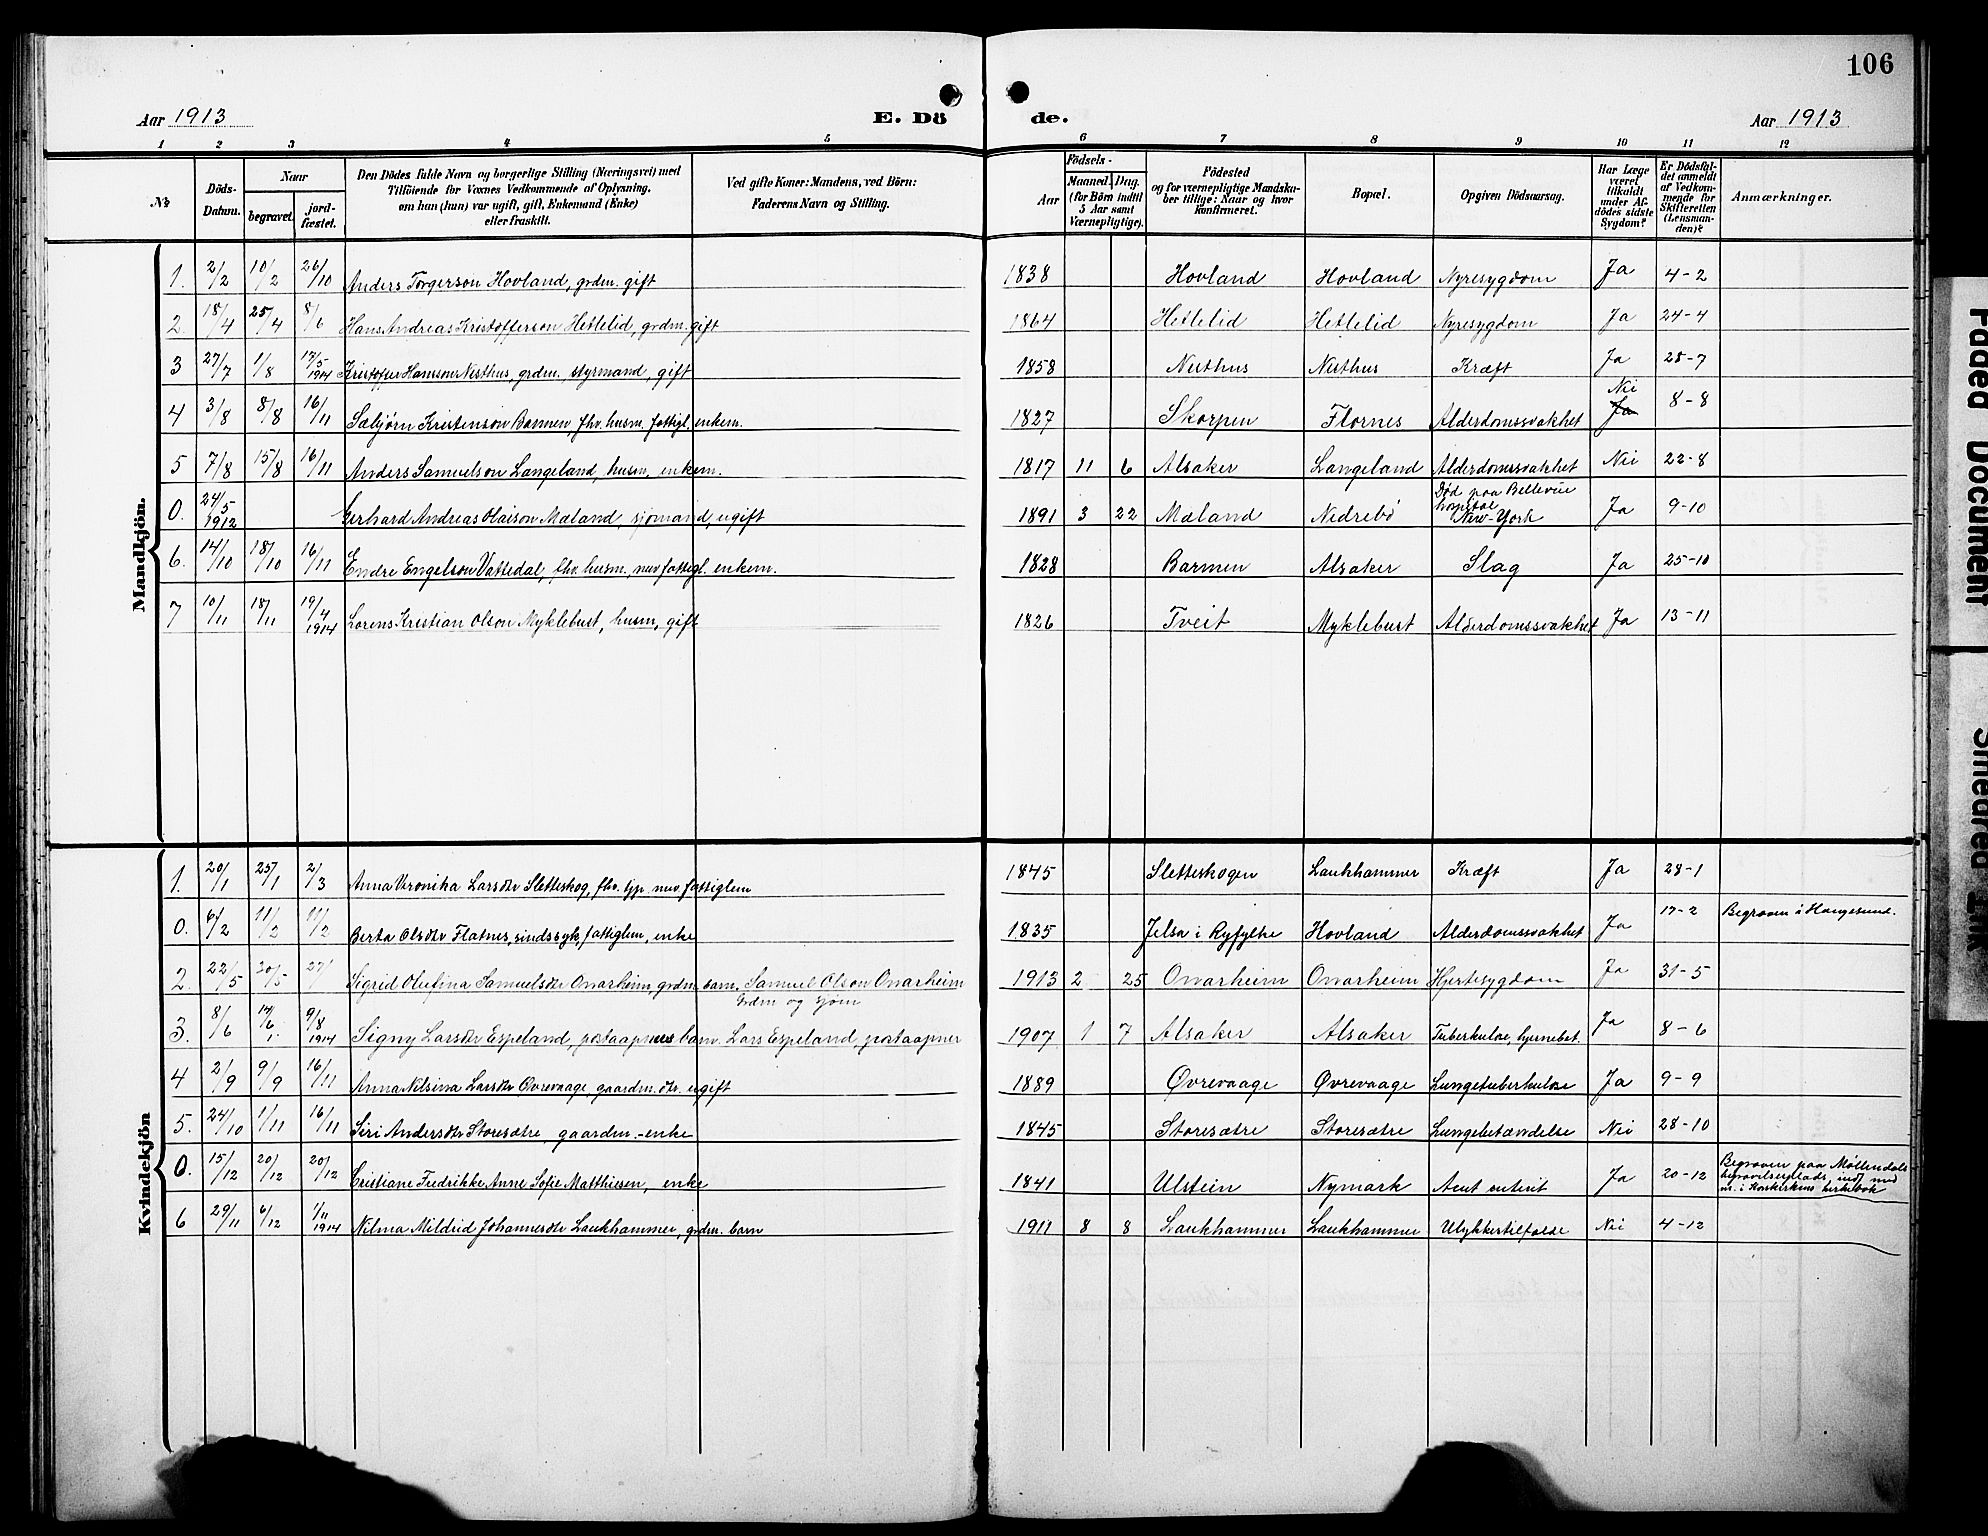 106
Aar 1913 E. Dö de. Aar 1913
1 2 3 4 5 6 7 8 9 10 11 12
№ Döds-Datum. Naar begravet. jord-fæstet. Den Dödes fulde Navn og borgerlige Stilling (Næringsvei) med Tilföiende for Voxnes Vedkommende af Oplysning, om han (hun) var ugift, gift, Enkemand (Enke) eller fraskilt. Ved gifte Koner: Mandens, ved Börn: Faderens Navn og Stilling. Födsels- Aar Maaned. Dag. (for Börn indtil 5 Aar samt Værnepligtige). Födested og for værnepligtige Mandskaber tillige: Naar og hvor konfirmeret. Bopæl. Opgiven Dödsaarsag. Har Læge været tilkaldt under Afdödes sidste Sygdom? Er Dödsfaldet anmeldt af Vedkommende for Skifteretten (Lensmanden)? Anmærkninger.
Mandkjön.
1. 2/2 10/2 26/10 Anders Torgerson Hovland, grdm. gift 1838 Hovland Hovland Nyresygdom Ja 4-2
2. 18/4 25/4 8/6 Hans Andreas Kristofferson Hetlelid, grdm. gift 1864 Hetlelid Hetlelid Nyresygdom Ja 24-4
3 27/7 1/8 17/5 1914 Kristoffer Hansson Nesthus, grdm., styrmand, gift 1858 Nesthus Nesthus Kræft Ja 28-7
4 3/8 8/8 16/11 Sæbjørn Kristenson Barmen, fhv. husm. fattigl. enkem. 1827 Skorpen Flornes Alderdomssvakhet Nei Ja 8-8
5 7/8 15/8 16/11 Anders Samuelson Langeland, husm., enkem. 1817 11 6 Alsaker Langeland Alderdomssvakhet Nei 22-8
0. 24/5 1912 Gerhard Andreas Olaison Mæland, sjømand, ugift 1891 3 22 Mæland Nedrebø Død paa Bellevue hospital New-York Ja 9-10
6. 14/10 18/10 16/11 Endre Engelson Vattedal, fhv. husm., nuv. fattigl. enkem. 1828 Barmen Alsaker Slag Ja 25-10
7 10/11 18/11 19/4 1914 Lorens Kristian Olson Myklebust, husm., gift 1826 Tveit Myklebust Alderdomssvakhet Ja 13-11
Kvindekjön
1. 20/1 25/1 2/3 Anna Veronika Larsdtr Sletteskog, fhv. tjp. nuv. fattiglem 1845 Sletteskogen Laukhammer Kræft Ja 28-1
0. 6/2 11/2 11/2 Berta Olsdtr Flatnes, sindssyk, fattiglem, enke 1835 Jelsa i Ryfylke Hovland Alderdomssvakhet Ja 17-2 Begraven i Haugesund.
2. 22/5 20/5 27/ Sigrid Olufina Samuelsdtr Onarheim grdm. barn. Samuel Olson Onarheim 1913 2 25 Onarheim Onarheim Hjertesygdom Ja 31-5
Grdm og sjøm
3. 8/6 14/6 9/8 1914 Signy Larsdtr Espeland, postaapners barn. Lars Espeland, postaapner 1907 1 7 Alsaker Alsaker Tuberkuløs, hjernebet. Ja 8-6
4 2/9 9/9 16/11 Anna Nilsina Larsdtr Øvrevaage, gaardm. dtr. ugift 1889 Øvrevaage Øvrevaage Lungetuberkulose Ja 9-9
5. 24/10 1/11 16/11 Siri Andersdtr Storesætre, gaardm.-enke 1845 Storesætre Storesætre Lungebetændelse Nei 28-10
0. 15/12 20/12 20/12 Cristiane Fredrikke Anne Sofie Matthiesen, enke 1841 Ulstein Nymark Acut enterit Ja 20-12 Begraven paa Møllendals begravelsesplads, indf. med nr. i Korskirkens kirkebok
6 29/11 6/12 1/11 1914 Nilma Mildrid Johannesdtr Laukhammer, grdm. barn 1911 8 8 Laukhammer Laukhammer Ulykkestilfælde Nei 4-12
Faded Document
Smeared Ink